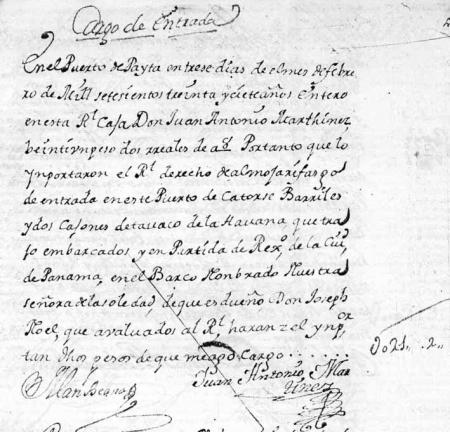 Cargo de Entrada
En el Puerto de Payta en trese dias de el mes de febre
ro de Mill setesientos treinta y siete años Entero
en esta Rl Casa Don Juan Antonio Marthinez
beintiun peso dos rreales de a8 Portanto que lo
ynportaron el Rl derecho de almojarifasgo
de entrada en este Puerto de Catorse Barriles
y dos Cajones de tavaco de la Havana que tra
jo embarcados y en Partida de Rexo de la Ciu
de Panama, en el Barco Nonbrado Nuestra
señora de la soledad, de que es dueño Don Joseph
Noel, que avaluados al Rl haranzel ynpor
tan dhos pesos de que me ago Cargo . . . . . .
Do21,, .2,,
Juan Antonio Mar
tinez